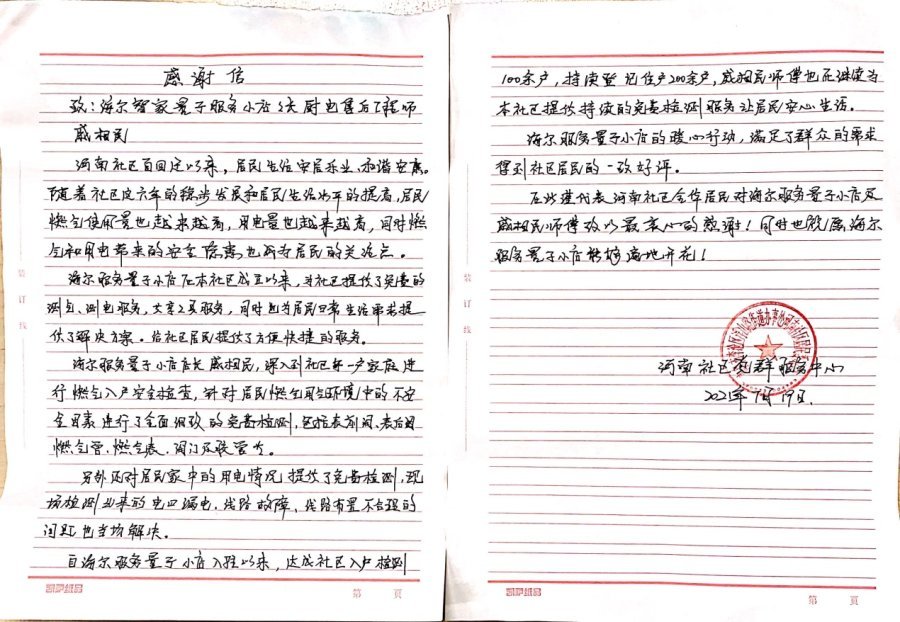 感谢信
致：海尔智家量子服务小店店长 厨电售后工程师
戚相民
河南社区自回迁以来，居民生活安居乐业、和谐安康。
随着社区这六年的稳步发展和居民生活水平的提高，居民
燃气使用量也越来越高，用电量也越来越高，同时燃
气和用电带来的安全隐患也成为居民的关注点。
海尔服务量子小店在本社区成立以来，为社区提供了免费的
测气、测电服务，大事工具服务，同时也为居民日常生活需求提
供了解决方案。给社区居民提供了方便快捷的服务。
海尔服务量子小店店长戚相民，深入到社区每一户家庭进
行燃气入户安全检查，针对居民燃气用气环境中的不安
全因素进行了全面细致的免费检测，包括表前阀、表后阀
燃气管、燃气表、阀门连接管等。
另外还对居民家中的用电情况提供了免费检测，现
场检测出来的电口漏电、线路故障、线路布置不合理的
问题也当场解决。
自海尔服务量子小店入驻以来，达成社区入户检测
装订线
第 頁
100余户，持续登记住户200余户，戚相民师傅也在继续为
本社区提供持续的免费检测服务让居民安心生活。
海尔服务量子小店的暖心行动，满足了群众的需求
得到社区居民的一致好评。
在此谨代表河南社区全体居民对海尔服务量子小店及
戚相民师傅致以最衷心的感谢！同时也祝愿海尔
服务量子小店能够遍地开花！
河南社区党群服务中心
2021年7月19日.
装订线
第 頁